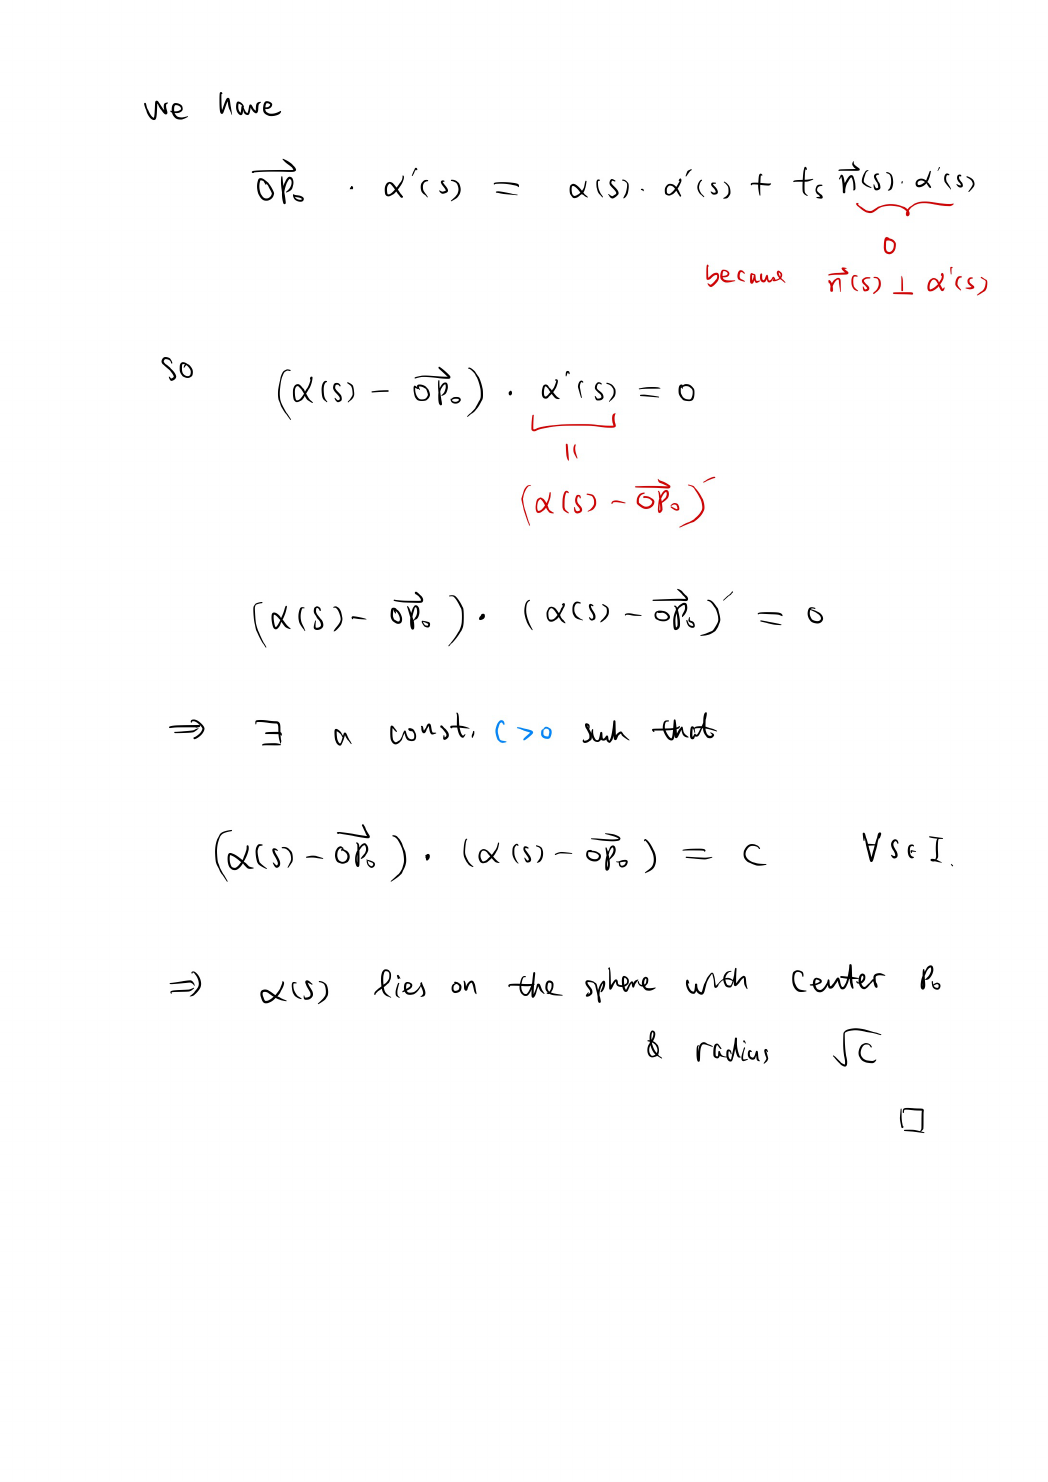 we have
$\overrightarrow{OP_0} \cdot \alpha'(s) = \alpha(s) \cdot \alpha'(s) + t_s \vec{n}(s) \cdot \alpha'(s)$
0
because $\vec{n}(s) \perp \alpha'(s)$
so $(\alpha(s) - \overrightarrow{OP_0}) \cdot \alpha'(s) = 0$
||
$(\alpha(s) - \overrightarrow{OP_0})'$
$(\alpha(s) - \overrightarrow{OP_0}) \cdot (\alpha(s) - \overrightarrow{OP_0})' = 0$
⇒ ∃ a const. C > 0 such that
$(\alpha(s) - \overrightarrow{OP_0}) \cdot (\alpha(s) - \overrightarrow{OP_0}) = C$ ∀ s ∈ I.
⇒ α(s) lies on the sphere with center P₀
& radius √C
□